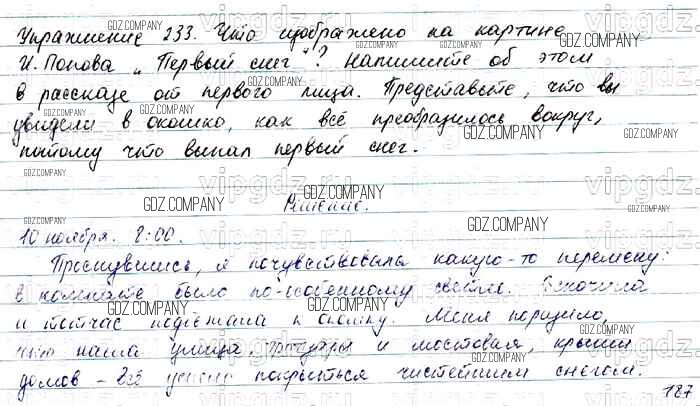 Упражнение 233. Что изображено на картине
И. Попова „Первый снег"? Напишите об этом
в рассказе от первого лица. Представьте, что вы
увидели в окошко, как всё преобразилось вокруг,
потому что выпал первый снег.
Решение.
10 ноября. 8:00.
Проснувшись, я почувствовала какую-то перемену:
в комнате было по-особенному светло. Вскочила
и тотчас подбежала к окошку. Меня поразило,
что наша улица, тротуары и мостовая, крыши
домов - всё успело покрыться чистейшим снегом.
187
GDZ.COMPANY
vipgdz.ru